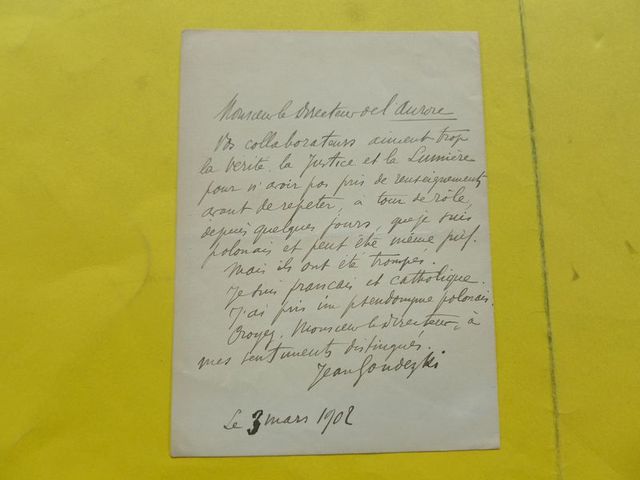 Monsieur le Directeur de l'Aurore
Vos collaborateurs aiment trop
la Verité, la Justice et la Lumière
pour n'avoir pas pris de renseignements
avant de repeter, à tour de rôle,
depuis quelques jours, que je suis
polonais et peut être même juif.
Mais ils ont été trompes.
Je suis français et catholique.
J'ai pris un pseudonyme polonais.
Croyez, Monsieur le directeur, à
mes sentiments distingués.
Jean Goudezki
Le 3 mars 1902